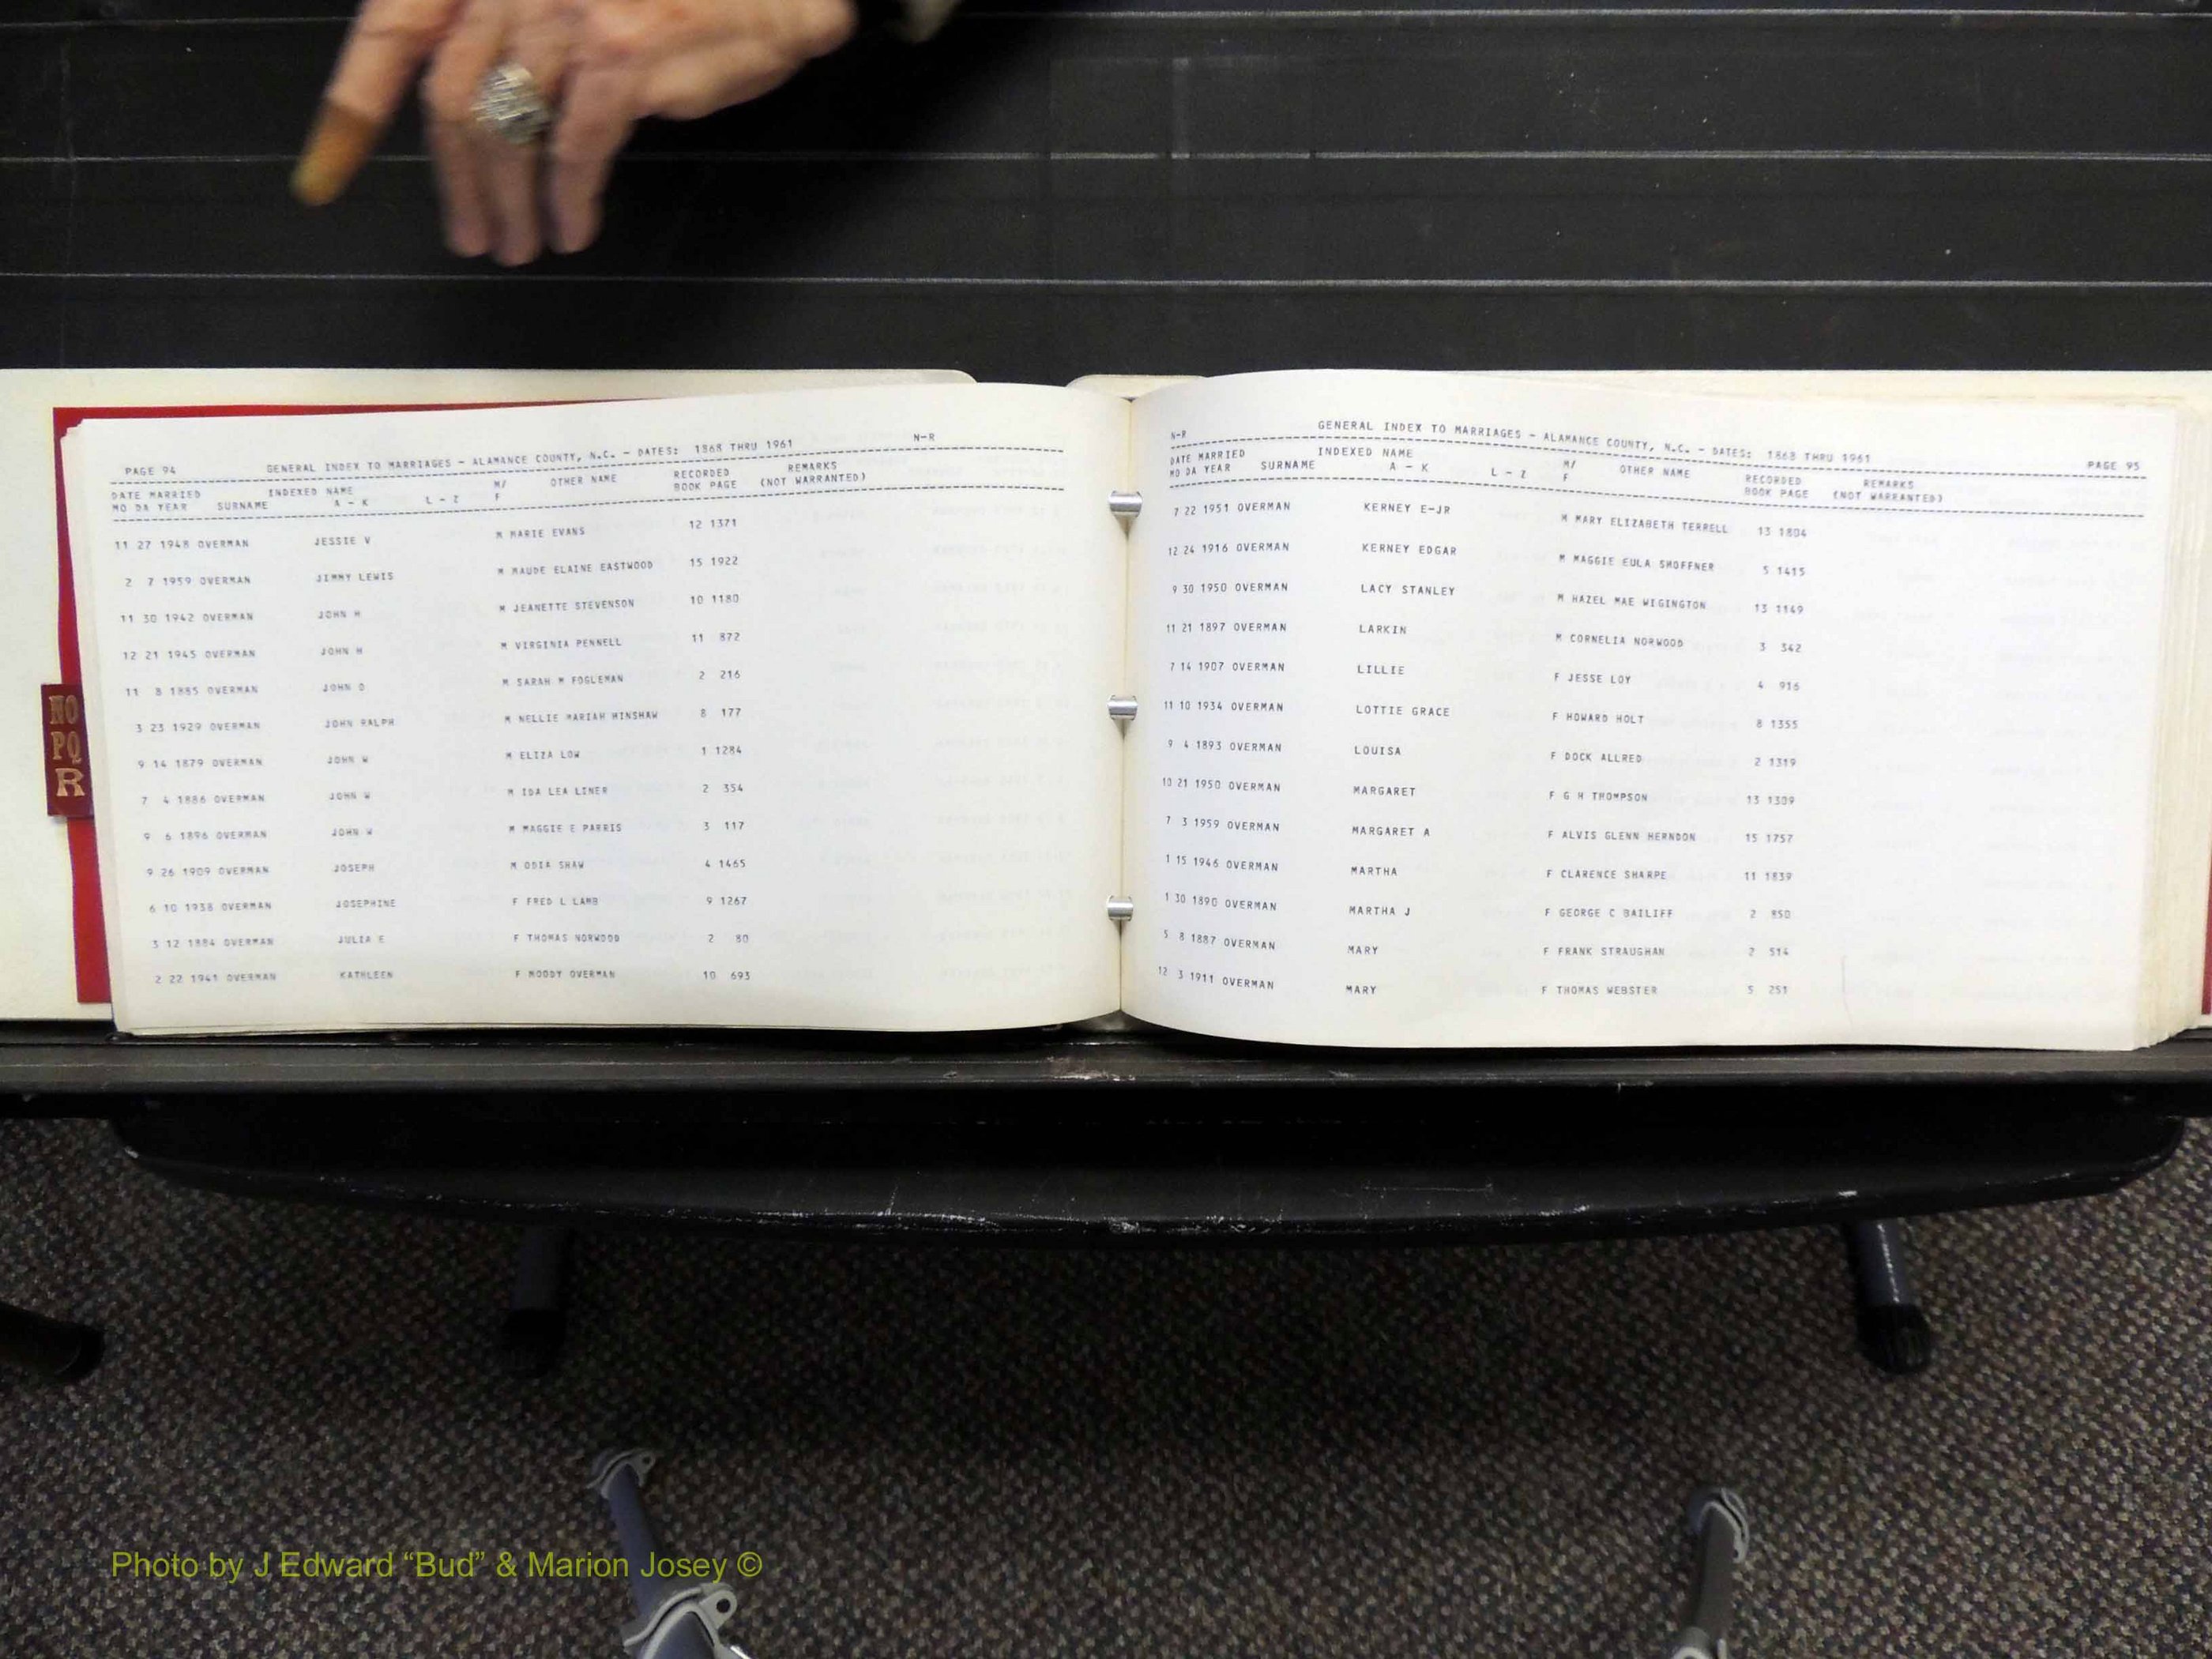 N-R
PAGE 94 GENERAL INDEX TO MARRIAGES - ALAMANCE COUNTY, N.C. - DATES: 1868 THRU 1961
DATE MARRIED INDEXED NAME M/ OTHER NAME RECORDED REMARKS
MO DA YEAR SURNAME A - K L - Z F BOOK PAGE (NOT WARRANTED)
11 27 1948 OVERMAN JESSIE V M MARIE EVANS 12 1371
2 7 1959 OVERMAN JIMMY LEWIS M MAUDE ELAINE EASTWOOD 15 1922
11 30 1942 OVERMAN JOHN H M JEANETTE STEVENSON 10 1180
12 21 1945 OVERMAN JOHN H M VIRGINIA PENNELL 11 872
11 8 1885 OVERMAN JOHN O M SARAH M FOGLEMAN 2 216
3 23 1929 OVERMAN JOHN RALPH M NELLIE MARIAH HINSHAW 8 177
9 14 1879 OVERMAN JOHN W M ELIZA LOW 1 1284
7 4 1886 OVERMAN JOHN W M IDA LEA LINER 2 354
9 6 1896 OVERMAN JOHN W M MAGGIE E PARRIS 3 117
9 26 1909 OVERMAN JOSEPH M ODIA SHAW 4 1465
6 10 1938 OVERMAN JOSEPHINE F FRED L LAMB 9 1267
3 12 1884 OVERMAN JULIA E F THOMAS NORWOOD 2 80
2 22 1941 OVERMAN KATHLEEN F MOODY OVERMAN 10 693
NO
PQ
R
N-R GENERAL INDEX TO MARRIAGES - ALAMANCE COUNTY, N.C. - DATES: 1868 THRU 1961 PAGE 95
DATE MARRIED INDEXED NAME M/ OTHER NAME RECORDED REMARKS
MO DA YEAR SURNAME A - K L - Z F BOOK PAGE (NOT WARRANTED)
7 22 1951 OVERMAN KERNEY E-JR M MARY ELIZABETH TERRELL 13 1804
12 24 1916 OVERMAN KERNEY EDGAR M MAGGIE EULA SHOFFNER 5 1415
9 30 1950 OVERMAN LACY STANLEY M HAZEL MAE WIGINGTON 13 1149
11 21 1897 OVERMAN LARKIN M CORNELIA NORWOOD 3 342
7 14 1907 OVERMAN LILLIE F JESSE LOY 4 916
11 10 1934 OVERMAN LOTTIE GRACE F HOWARD HOLT 8 1355
9 4 1893 OVERMAN LOUISA F DOCK ALLRED 2 1319
10 21 1950 OVERMAN MARGARET F G H THOMPSON 13 1309
7 3 1959 OVERMAN MARGARET A F ALVIS GLENN HERNDON 15 1757
1 15 1946 OVERMAN MARTHA F CLARENCE SHARPE 11 1839
1 30 1890 OVERMAN MARTHA J F GEORGE C BAILIFF 2 850
5 8 1887 OVERMAN MARY F FRANK STRAUGHAN 2 514
12 3 1911 OVERMAN MARY F THOMAS WEBSTER 5 251
Photo by J Edward “Bud” & Marion Josey ©